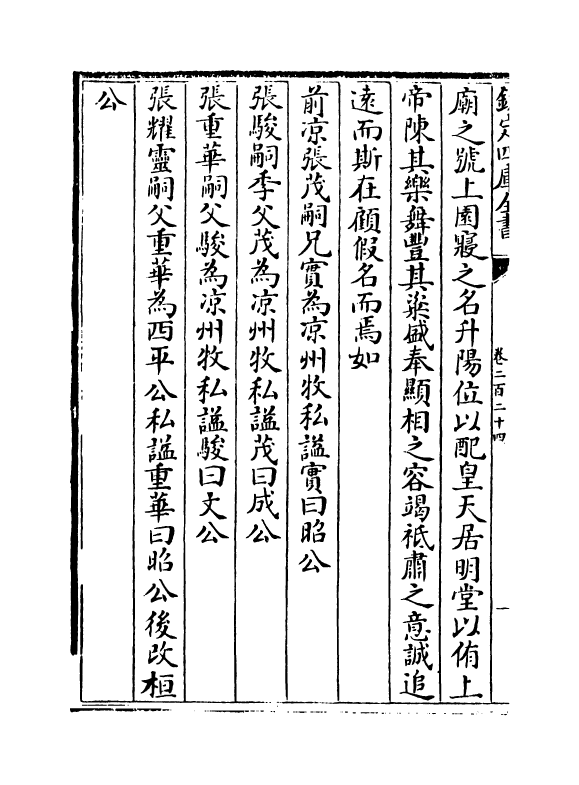 欽定四庫全書
卷二百二十四
一
廟之號上園寢之名升陽位以配皇天居明堂以侑上
帝陳其樂舞豐其粢盛奉顯相之容竭祗肅之意誠追
遠而斯在顧假名而焉如
前凉張茂嗣兄實為凉州牧私諡實曰昭公
張駿嗣季父茂為凉州牧私諡茂曰成公
張重華嗣父駿為凉州牧私諡駿曰文公
張耀靈嗣父重華為西平公私諡重華曰昭公後改桓
公